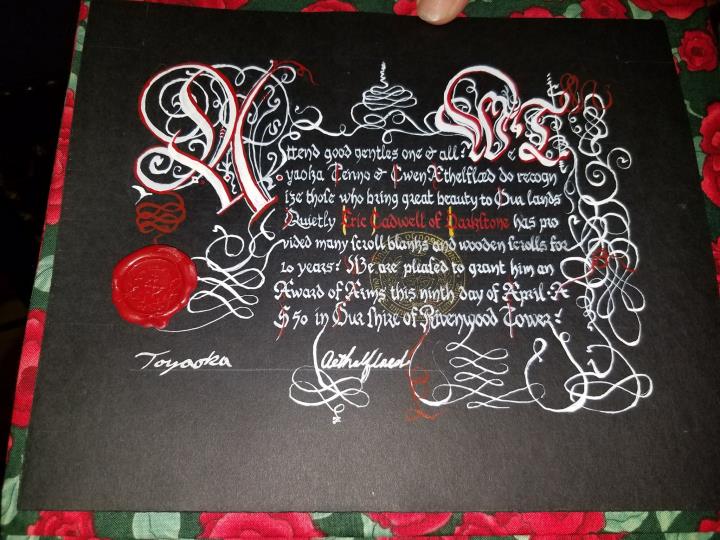 Attend good gentles one & all! We T
oyaoka Tenno & Cwen Æthelflæd do recogn
ize those who bring great beauty to Our lands
Quietly Eric Cadwell of Darkstone has pro
vided many scroll blanks and wooden scrolls for
10 years! We are pleased to grant him an
Award of Arms this ninth day of April A
S 50 in Our Shire of Rivenwood Tower!
Toyaoka Aethelflaed